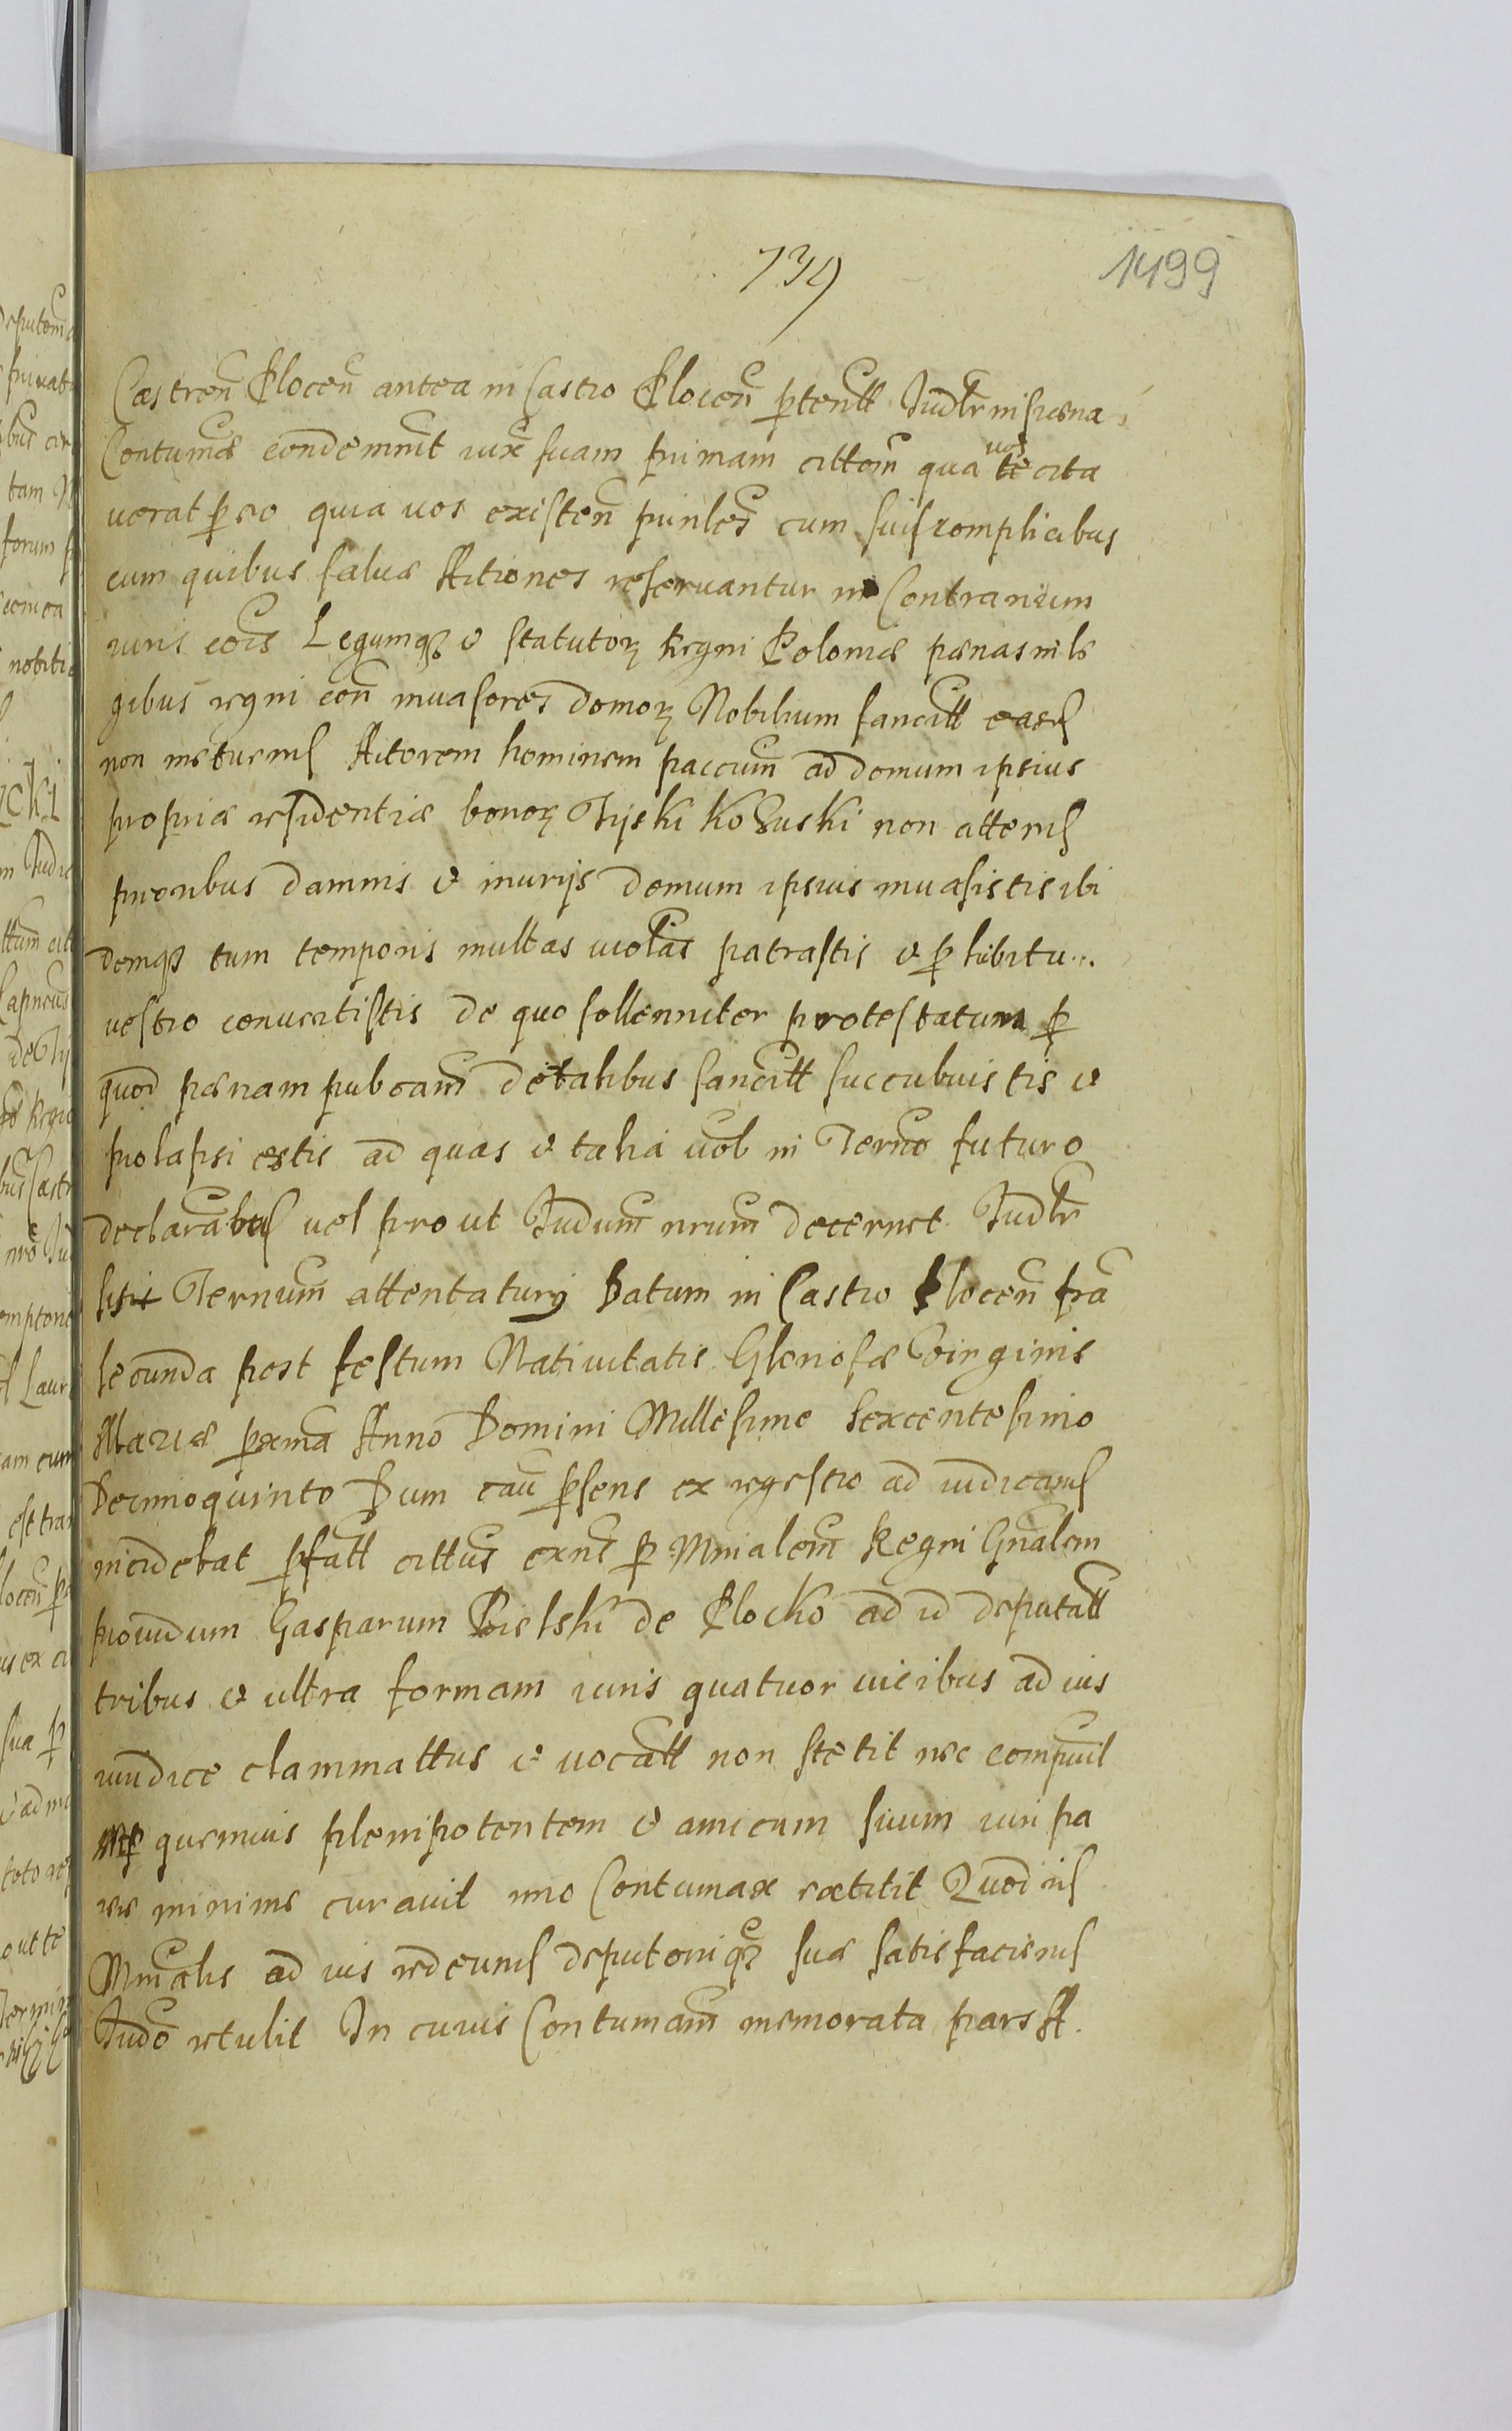 739
1499
Castreñ Ploceñ antea in Castro Ploceñ ptentt Judlr in pæna
Contumæ condemnnt iux suam primam cittom qua vos te cita
uerat pro eo quia uos existen prinles cum suis complicibus
cum quibus saluæ Actiones reseruantur in Contrarium
iuris cois Legumq3 & statutorz Regni Poloniæ pænas in le
gibus regni con inuasores domorz Nobilium sancitt easq
non metuens Actorem hominem paccum ad domum ipsius
propriæ residentiæ bonorz Tyski Kozuski non attens
prioribus damnis & iniurijs domum ipsius inuasistis ibi
demq3 tum temporis multas violas patrastis & p libitu
uestro conuertistis de quo sollenniter protestatum p
quod pænam pubcam de talibus sancitt succubuistis &
prolapsi estis ad quas & talia uob in Termo futuro
declarabus uel prout Judum nrum decernet Judlr
Termum attentaturj Datum in Castro Ploceñ fra
secunda post festum Natiuitatis Gloriosæ Virginis
Mariæ pxma Anno Domini Millesimo Sexcentesimo
Decimoquinto Dum cau psens ex regestro ad iudicans
incidebat pfatt cittus exns p Mnialem Regni Gnalem
prouidum Gasparum Bielski de Plocko ad id deputatt
tribus & ultra formam iuris quatuor uicibus ad ius
iuridice clammattus & vocatt non stetit nec compuit
neq quemuis plenipotentem & amicum suum iuri pa
rere minime curauit imo Contumax extitit Quod ids
Mnialis ad ius rediens deputoniq3 suæ satisfaciens
Judo retulit In cuius Contumam memorata pars A.